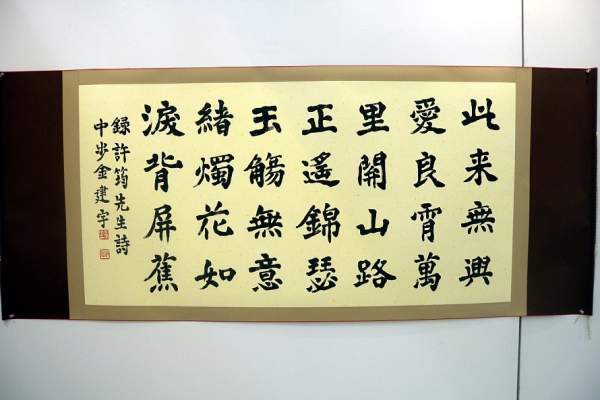 此来無興
愛良宵萬
里開山路
正遙錦瑟
玉觴無意
緒燭花如
淚背屏蕉
録許筠先生詩
中步金建字